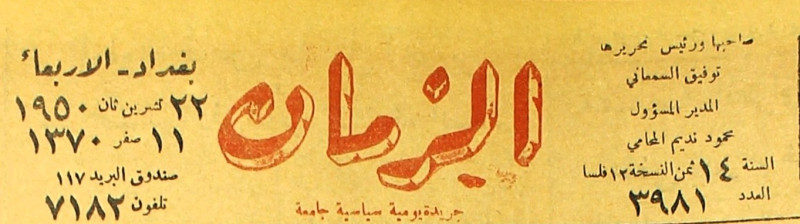 صاحبها ورئيس تحريرها
توفيق السمعاني
المدير المسؤول
محمود نديم المحامي
السنة ١٤ ثمن النسخة ١٢ فلسا
العدد ٣٩٨١
الزمان
جريدة يومية سياسية جامعة
بغداد - الاربعاء
٢٢ تشرين ثان ١٩٥٠
١١ صفر ١٣٧٠
صندوق البريد ١١٧
تلفون ٧١٨٢